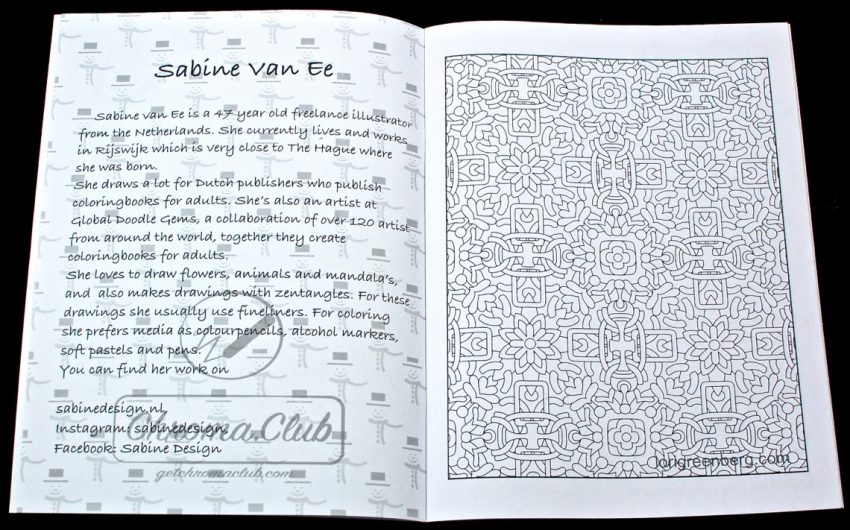 Sabine Van Ee
Sabine van Ee is a 47 year old freelance illustrator
from the Netherlands. She currently lives and works
in Rijswijk which is very close to The Hague where
she was born.
She draws a lot for Dutch publishers who publish
coloringbooks for adults. She's also an artist at
Global Doodle Gems, a collaboration of over 120 artist
from around the world, together they create
coloringbooks for adults.
She loves to draw flowers, animals and mandala's,
and also makes drawings with zentangles. For these
drawings she usually use fineliners. For coloring
she prefers media as colourpencils, alcohol markers,
soft pastels and pens.
You can find her work on
sabinedesign.nl,
Instagram: sabinedesign,
Facebook: Sabine Design
Chroma.Club
getchromaclub.com
lorigreenberg.com